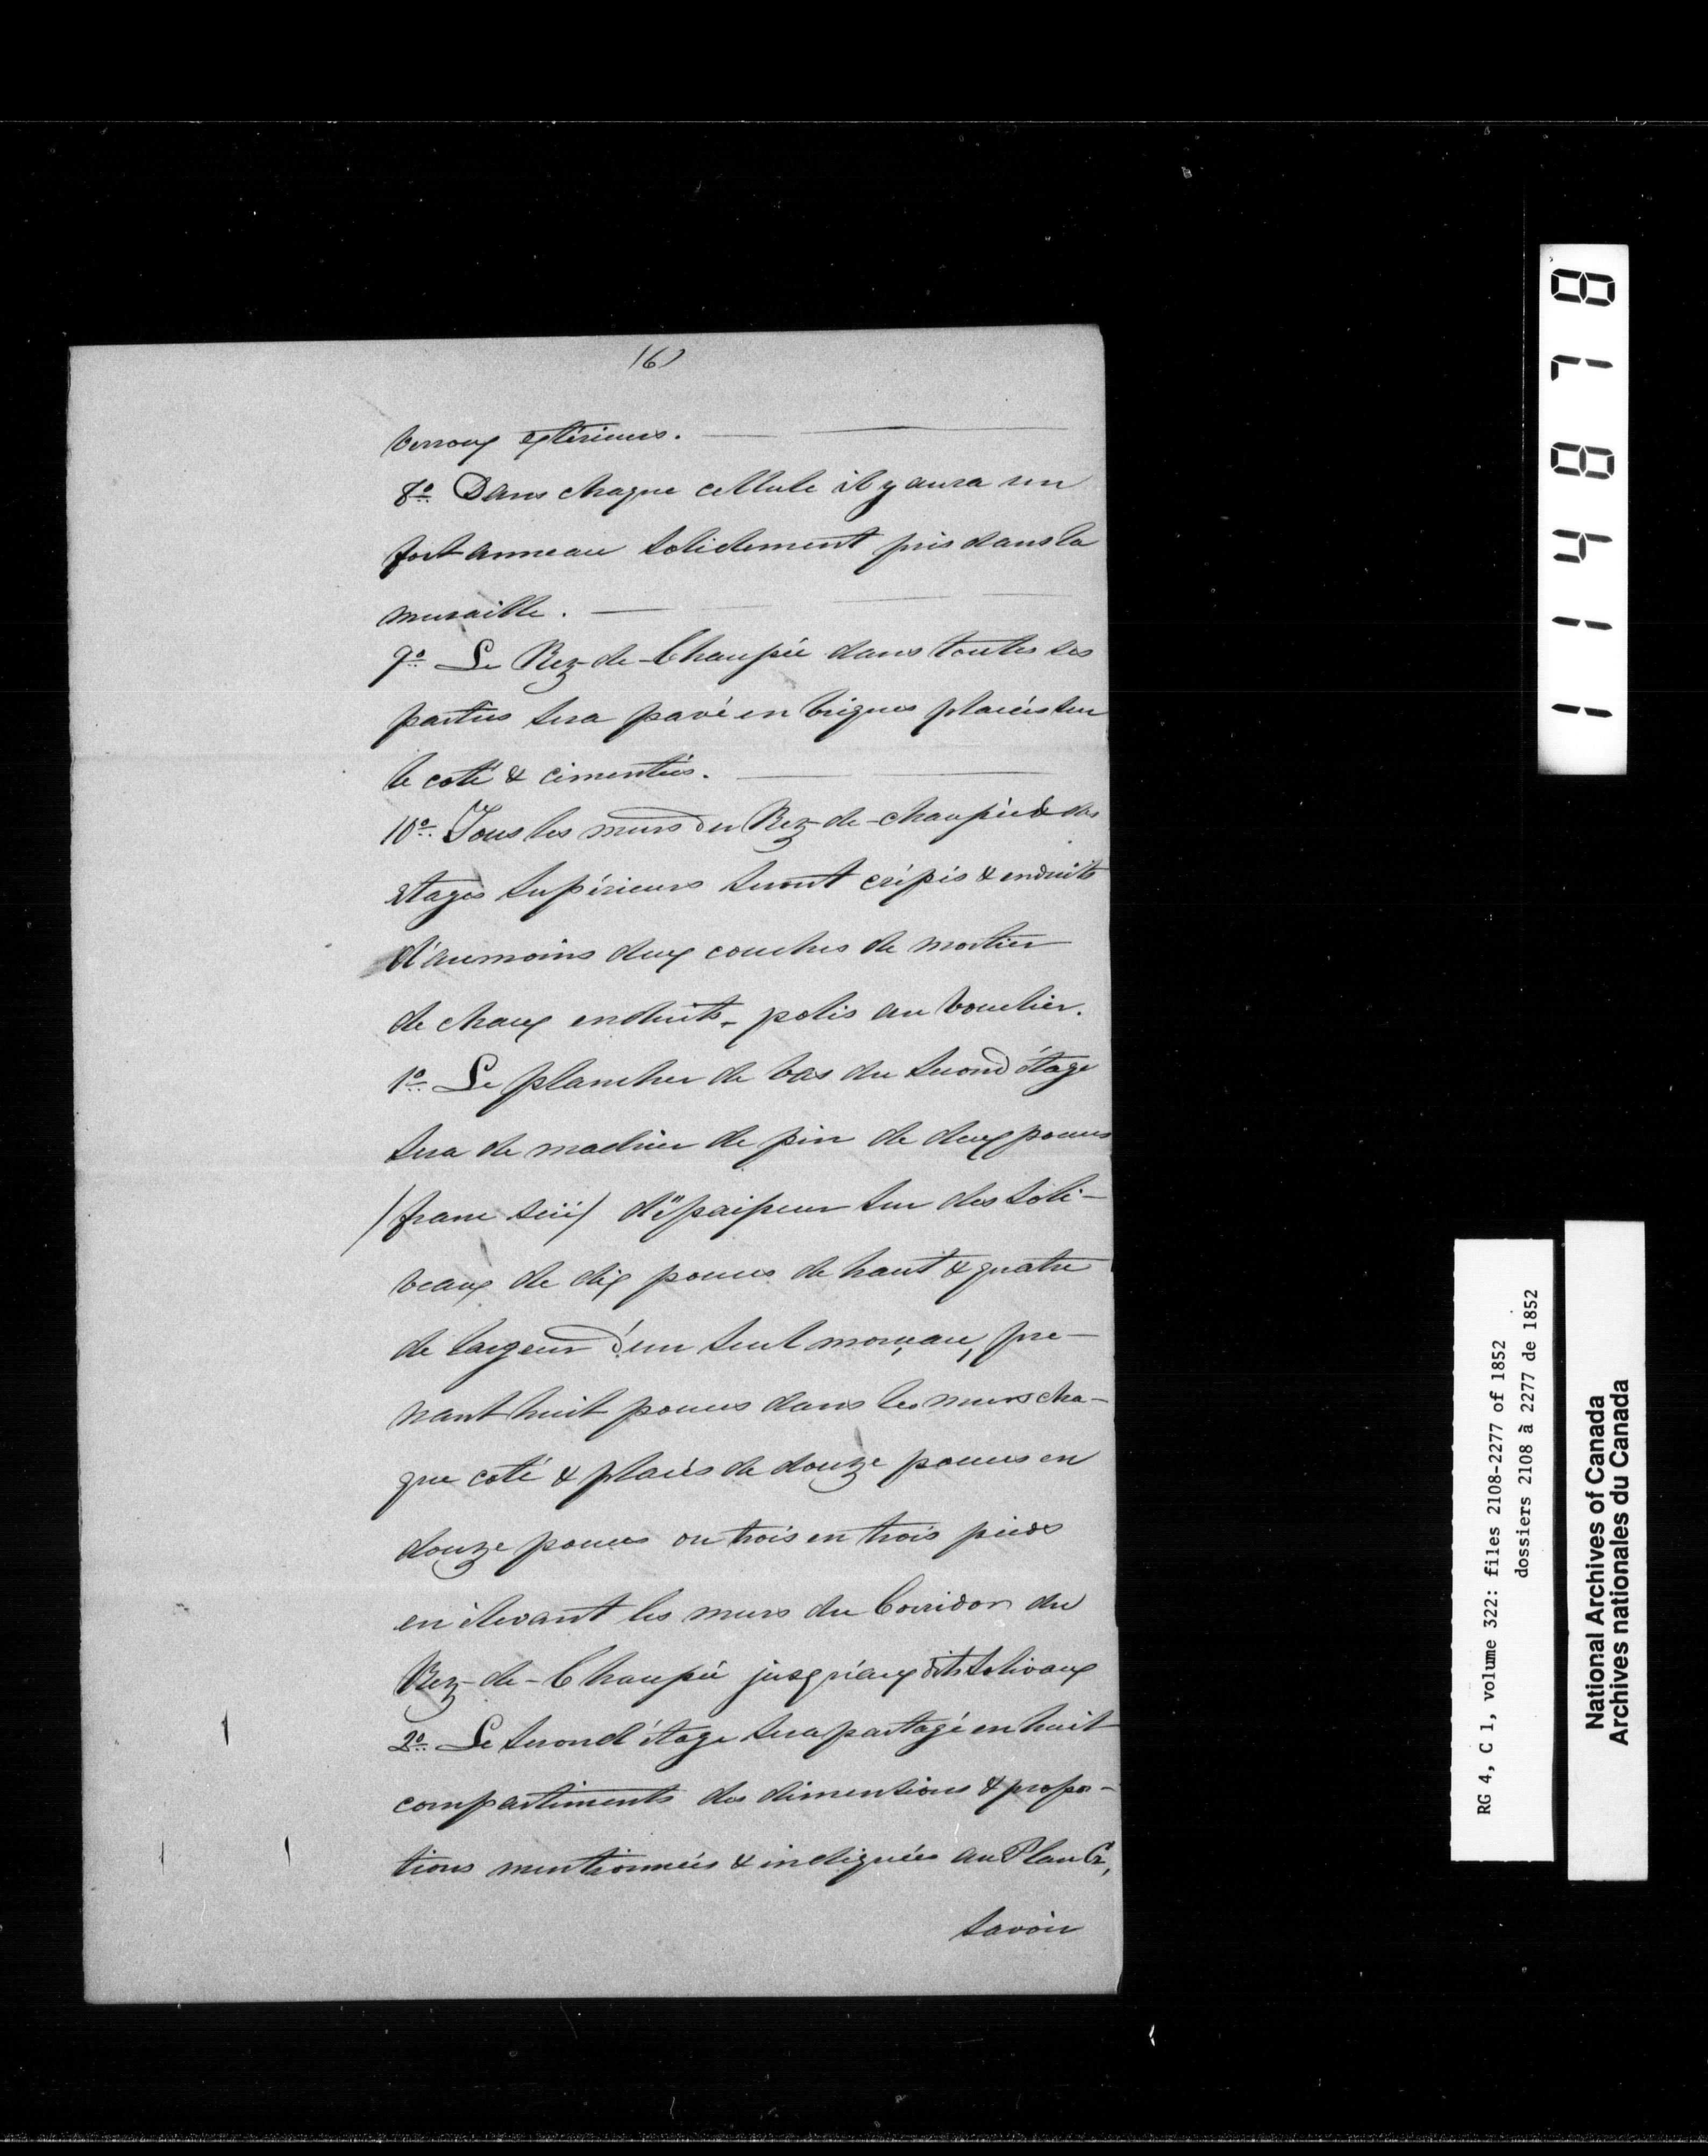 /6/
verroux extérieurs.
8º Dans chaque cellule il y aura un
fort anneau solidement pris dans la
muraille.
9º Le Rez-de-Chaussée dans toutes ses
parties sera pavé en briques placées sur
le coté & cimentées.
10º Tous les murs du Rez-de-chaussée & des
étages supérieurs seront crépis & enduits
d'aumoins deux couches de mortier
de chaux enduits, polis au bouclier.
1º Le plancher de bas du second étage
sera de madrier de pin de deux pouces
/franc scié/ d'épaisseur sur des soli-
veaux de dix pouces de haut & quatre
de largeur d'un seul morceau, pre-
nant huit pouces dans les murs cha-
que coté & placés de douze pouces en
douze pouces ou trois en trois pieds
en élevant les murs du Corridor du
Rez-de-Chaussée jusqu'aux dits soliveaux
2º Le second étage sera partagé en huit
compartiments des dimentions & propor-
tions mentionnées & indiquées au Plan G,
savoir
114878
RG 4, C 1, volume 322: files 2108-2277 of 1852
dossiers 2108 à 2277 de 1852
National Archives of Canada
Archives nationales du Canada